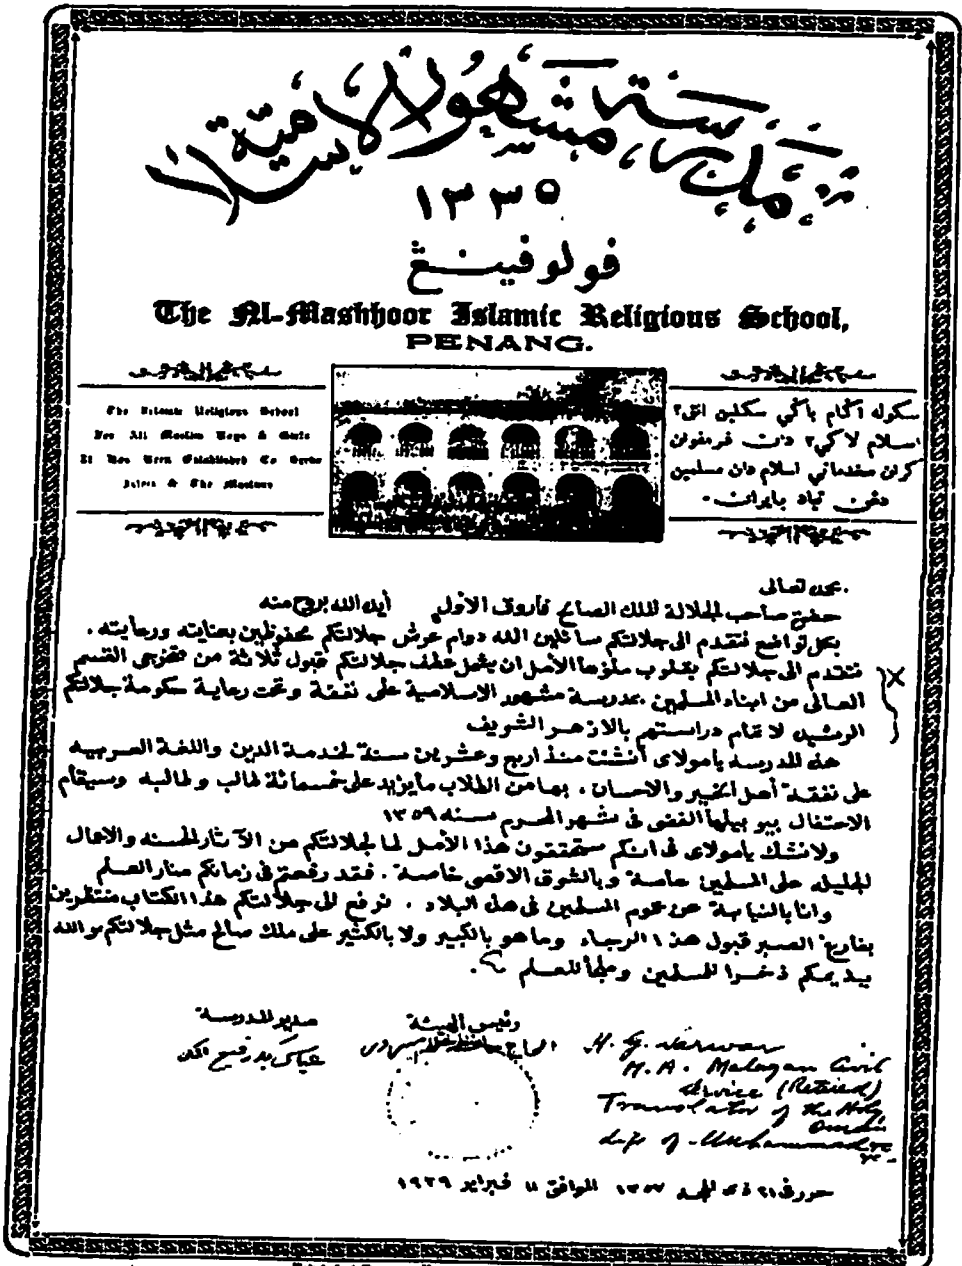 مدرسة مشهور الاسلامية
١٣٣٥
فولو فينڠ
The Al-Mashhoor Islamic Religious School,
PENANG.
The Islamic Religious School
For All Moslim Boys & Girls
It Has Been Established To Serve
Islam & The Moslems
سكوله اڬام باڬي سكلين انق٢
اسلام لاكي٢ دان فرمفوان
كران خدماتي اسلام دان مسلمين
دڠن تياد بايران.
بحمده تعالى
حضرة صاحب الجلالة الملك الصالح فاروق الاول أيده الله بروح منه
بكل تواضع نتقدم الى جلالتكم سائلين الله دوام عرش جلالتكم محفوظين بعنايته ورعايته.
نتقدم الى جلالتكم بقلوب ملؤها الأمل ان يشمل عطف جلالتكم قبول ثلاثة من متخرجى القسم
العالى من ابناء المسلمين بمدرسة مشهور الاسلامية على نفقة وتحت رعاية حكومة جلالتكم
الرشيده لاتمام دراستهم بالازهر الشريف
هذه المدرسه يامولاى أنشئت منذ اربع وعشرين سنة لخدمة الدين واللغة العربيه
على نفقة أهل الخير والاحسان. بها من الطلاب مايزيد على خمسمائة طالب وطالبه وسيقام
الاحتفال بيوبيلها الفضى فى شهر المحرم سنه ١٣٥٩
ولانشك يامولاى فى انكم ستحققون هذا الأمل لما لجلالتكم من الآثار الحسنه والاعمال
الجليله على المسلمين عامة وبالشرق الاقصى خاصة. فقد رفعتم فى زمانكم منار العلم
وانا بالنيابة عن عموم المسلمين فى هذه البلاد. نرفع الى جلالتكم هذا الكتاب منتظرين
بفارغ الصبر قبول هذا الرجاء وما هو بالكبير ولا بالكثير على ملك صالح مثل جلالتكم والله
يديمكم ذخرا للمسلمين وملجأ للعلم
مدير المدرسة
رئيس الهيئة
الحاج
M.A. Malayan Civil
Service (Retired)
Translator of the Holy
Quran
Life of Muhammad etc
etc.
حرر فى ٢١ ذى الحجه ١٣٥٧ الموافق ١١ فبراير ١٩٣٩